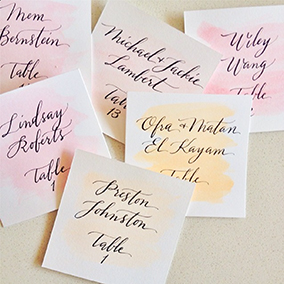 Mem
Bernstein
Table
1
Michael & Jackie
Lambert
Table
13
Wiley
Wang
Table
Lindsay
Roberts
Table
1
Ofra & Matan
El Kayam
Table
Preston
Johnston
Table
1